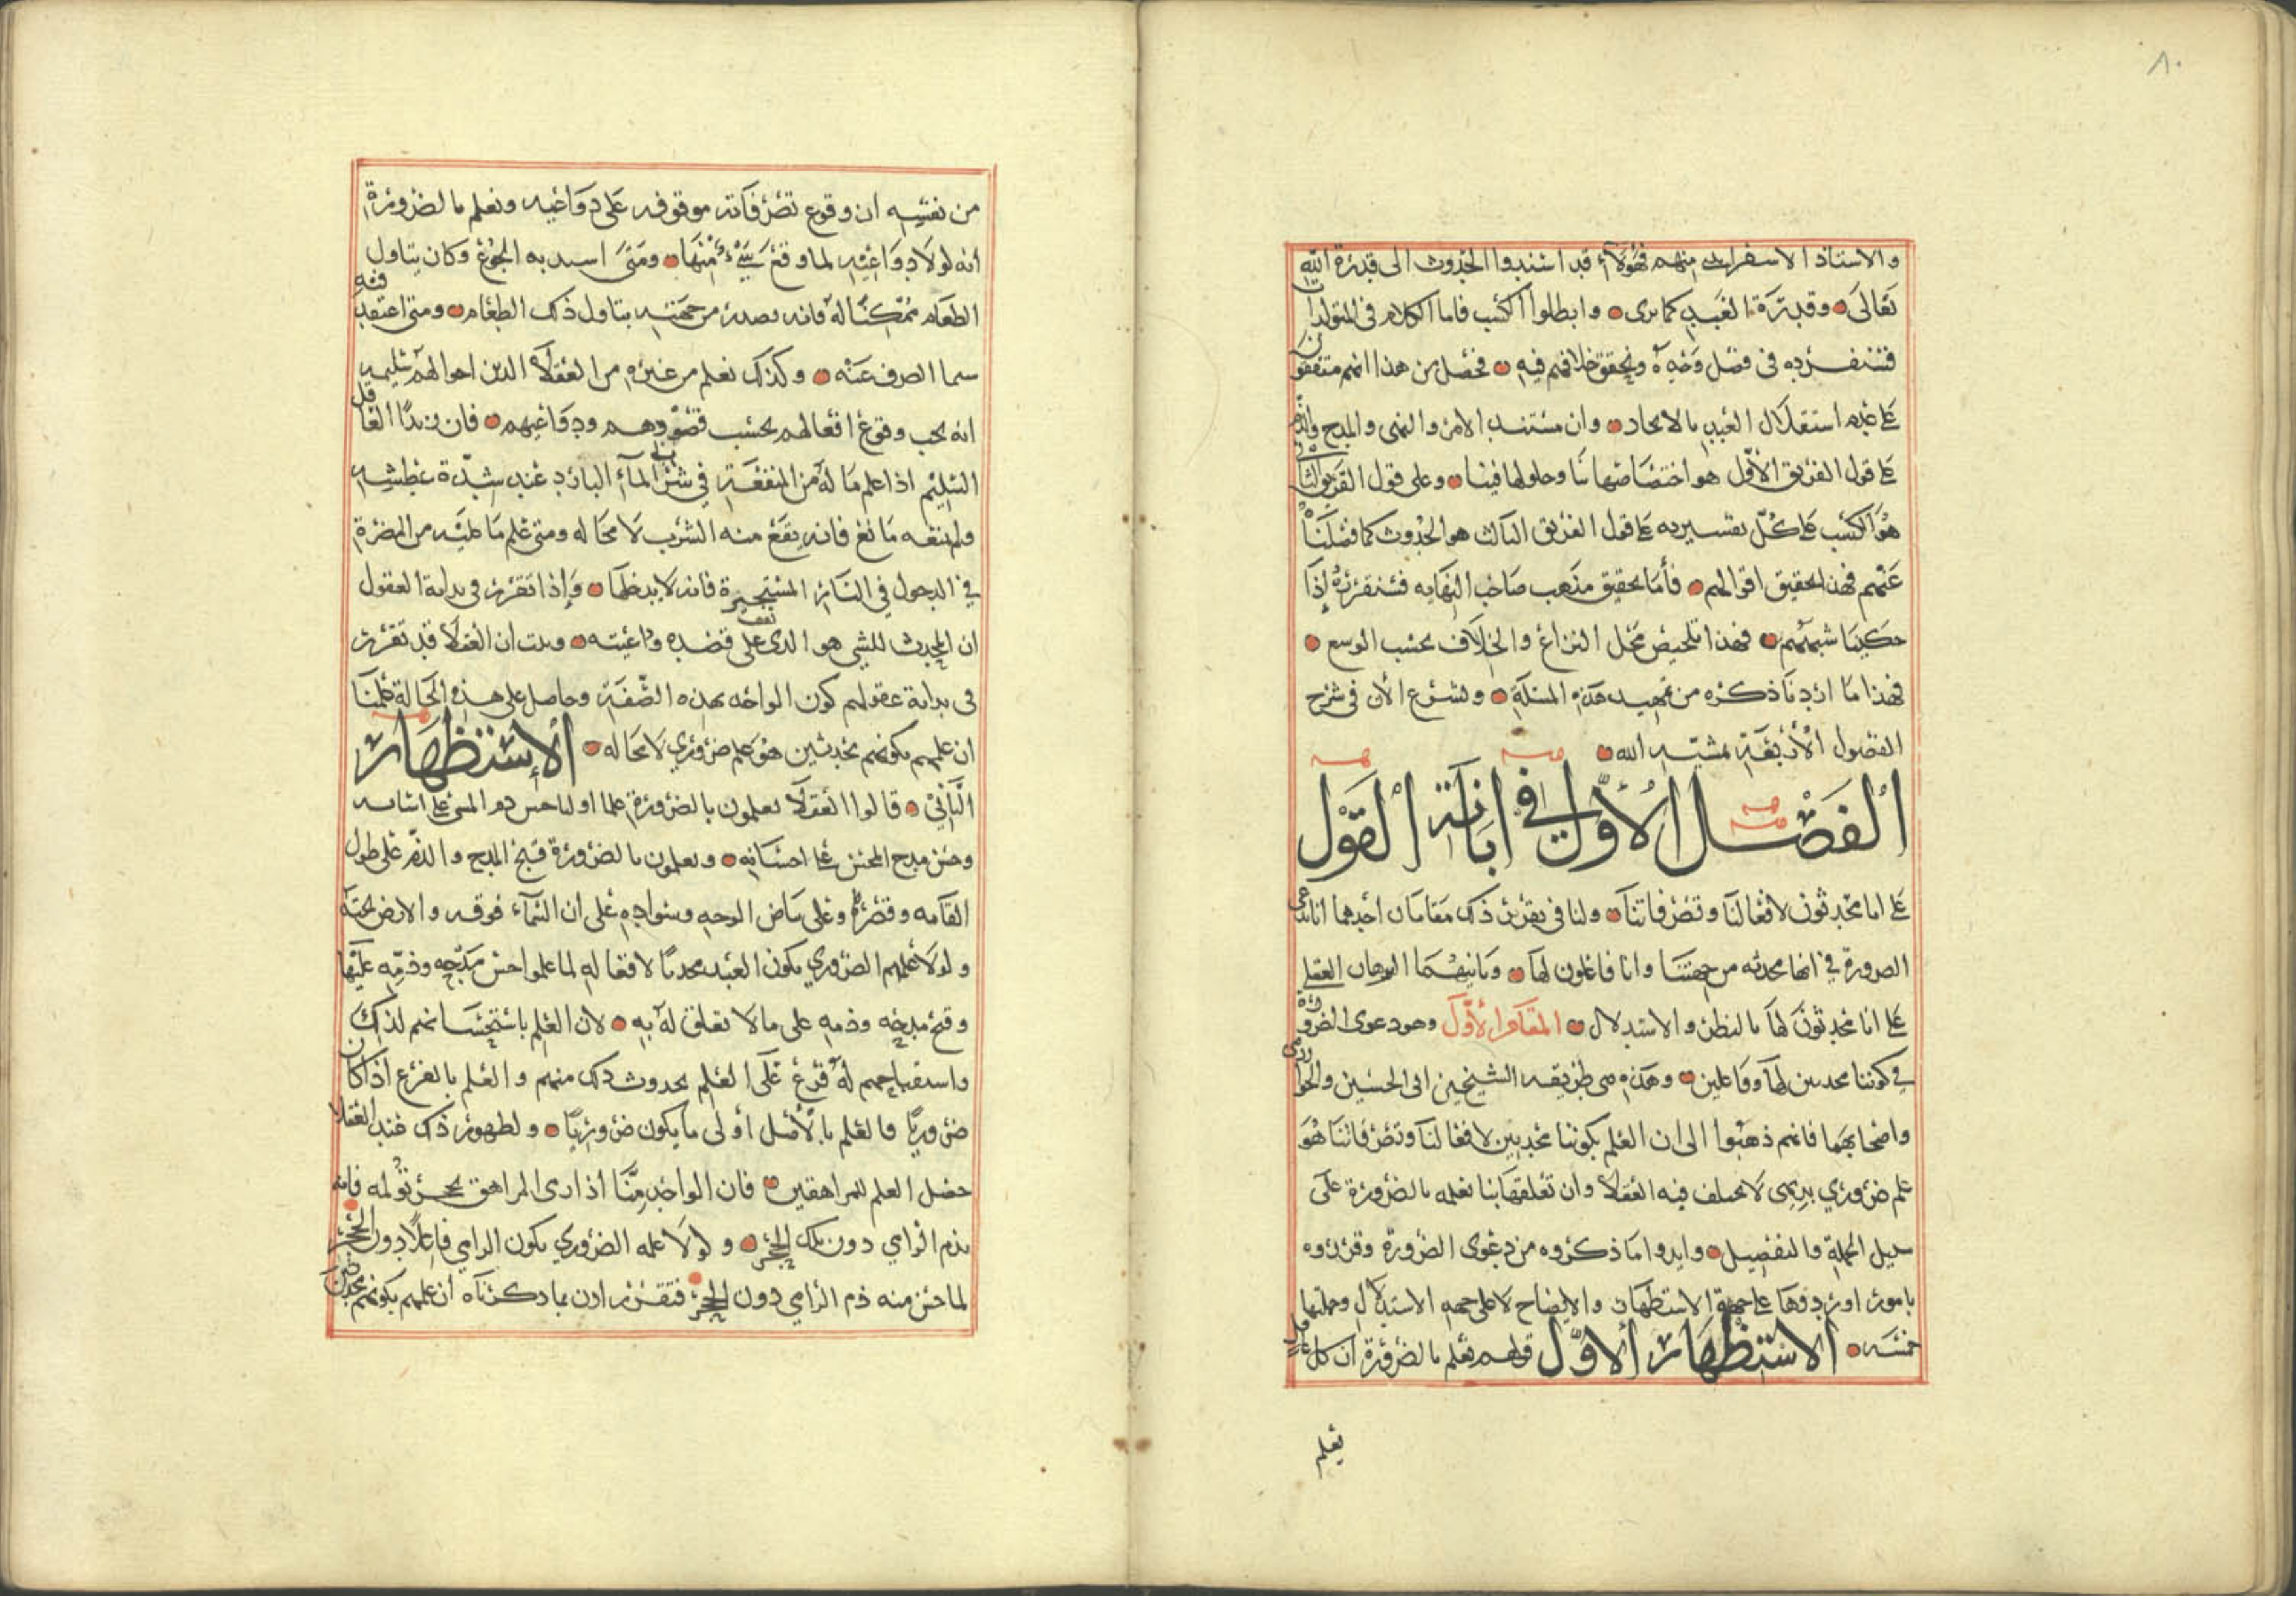 ٨٠
والاستاذ الاسفرايني منهم فهؤلاء قد اسندوا الحدوث الى قدرة الله
تعالى وقدرة العبد كما ترى وابطلوا الكسب فاما الكلام في المتولدات
فسنفرده في فصل وحده ونحقق خلافهم فيه فحصل من هذا انهم متفقون
على عدم استقلال العبد بالايجاد وان مستند الامر والنهي والمدح والذم
على قول الفريق الاول هو اختصاصها بنا وحلولها فينا وعلى قول الفريق الثاني
هو الكسب على كل تفسيريه على قول الفريق الثالث هو الحدوث كما فصلناه
عنهم فهذا تحقيق اقوالهم فأما تحقيق مذهب صاحب النهايه فسنقرره إذا
حكينا شبههم فهذا تلخيص محل النزاع والخلاف بحسب الوسع
فهذا ما اردنا ذكره من تمهيد هذه المسئلة ولنشرع الأن في شرح
الفصول الأربعة بمشيئة الله
الفصل الأول في ابانة القول
على انا محدثون لافعالنا وتصرفاتنا ولنا في تقرير ذلك مقامان أحدهما انا ندعي
الضرورة في انها محدثه من جهتنا وانا فاعلون لها وثانيهما البرهان العقلي
على انا محدثون لها بالنظر والاستدلال المقام الأول وهو دعوى الضرورة
في كوننا محدثين لها وفاعلين وهذه هي طريقة الشيخين ابي الحسين والخوارزمي
واصحابهما فانهم ذهبوا الى ان العلم بكوننا محدثين لافعالنا وتصرفاتنا هو
علم ضروري بديهي لا يختلف فيه العقلاء وان تعلقها بنا نعلمه بالضرورة على
سبيل الجملة والتفصيل وايدوا ما ذكروه من دعوى الضرورة وقرروه
بامور اوردوها على جهة الاستظهار والايضاح لا على جهة الاستدلال وجملتها
خمسه الاستظهار الأول قولهم نعلم بالضرورة أن كل عاقل
يعلم
من نفسه ان وقوع تصرفاته موقوفه على دواعيه ونعلم بالضرورة
أنه لولا دواعيه لما وقع شيء منها ومتى اشتد به الجوع وكان يتناول
الطعام ممكنا له فانه يصدر من جهته يتناول ذلك الطعام ومتى اعتقد فيه
سما انصرف عنه وكذلك نعلم من غيره من العقلاء الذين احوالهم سليمه
انه يجب وقوع افعالهم بحسب قصودهم ودواعيهم فان زيدا العاقل
السليم اذا علم ما له من المنفعة في شرب الماء البارد عند شدة عطشه
ولم يمنعه مانع فانه يقع منه الشرب لا محاله ومتى علم ما عليه من المضرة
في الدخول في النار المستجيرة فانه لا يدخلها وإذا تقرر في بداية العقول
ان المحدث للشي هو الذي يقف على قصده وداعيته وثبت ان العقلاء قد تقرر
في بداية عقولهم كون الواحد بهذه الصفة وحاصل على هذه الحالة علمنا
ان علمهم بكونهم محدثين هو علم ضروري لا محاله الاستظهار
الثاني قالوا العقلاء يعلمون بالضرورة علما اوليا حسن ذم المسئ على اساته
وحسن مدح المحسن على احسانه ويعلمون بالضرورة قبح المدح والذم على طول
القامه وقصرها وعلى بياض الوجه وسواده وعلى ان السماء فوقه والارض تحته
ولولا علمهم الضروري بكون العبد محدثا لافعاله لما علموا حسن مدحه وذمه عليها
وقبح مدحه وذمه على ما لا تعلق له به لان العلم باستحسانهم لذلك
واستقباحهم له فرع على العلم بحدوث ذلك منهم والعلم بالفرع اذا كان
ضروريا فالعلم بالأصل أولى ما يكون ضروريا ولظهور ذلك عند العقلاء
حصل العلم للمراهقين فان الواحد منا اذا رمى المراهق بحجر تؤلمه فانه
يذم الرامي دون تلك الحجر ولولا علمه الضروري بكون الرامي فاعلا دون الحجر
لما حسن منه ذم الرامي دون الحجر فتقرر اذن بما ذكرناه ان علمهم بكونهم محدثين